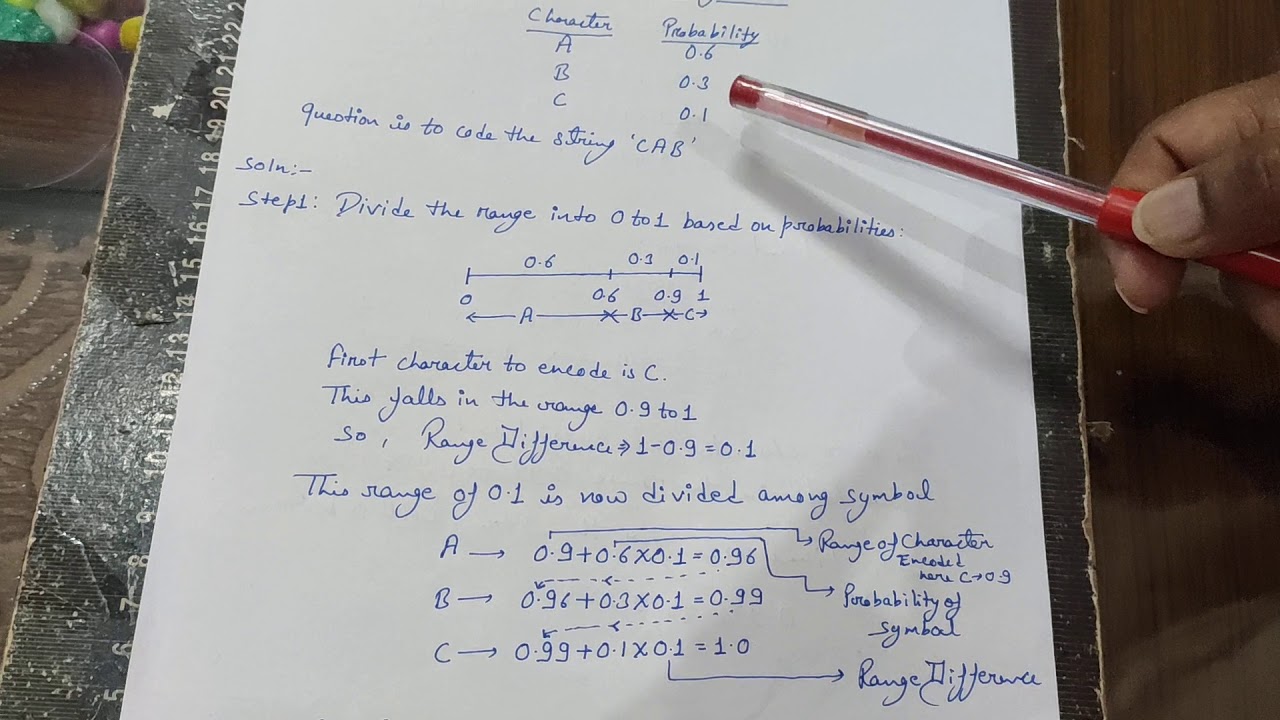 Character Probability
A 0.6
B 0.3
C 0.1
Question is to code the string 'CAB'
Soln:-
Step1: Divide the range into 0 to 1 based on probabilities:
0.6 0.3 0.1
0 0.6 0.9 1
A B C
First character to encode is C.
This falls in the range 0.9 to 1
So, Range Difference ⇒ 1-0.9 = 0.1
This range of 0.1 is now divided among symbol
A → 0.9+0.6×0.1 = 0.96
Range of Character
Encoded
here C→0.9
B → 0.96+0.3×0.1 = 0.99
Probability of
symbol
C → 0.99+0.1×0.1 = 1.0
Range Difference
22
21
20
19
18
17
16
15
14
13
10
9
8
7
6
5